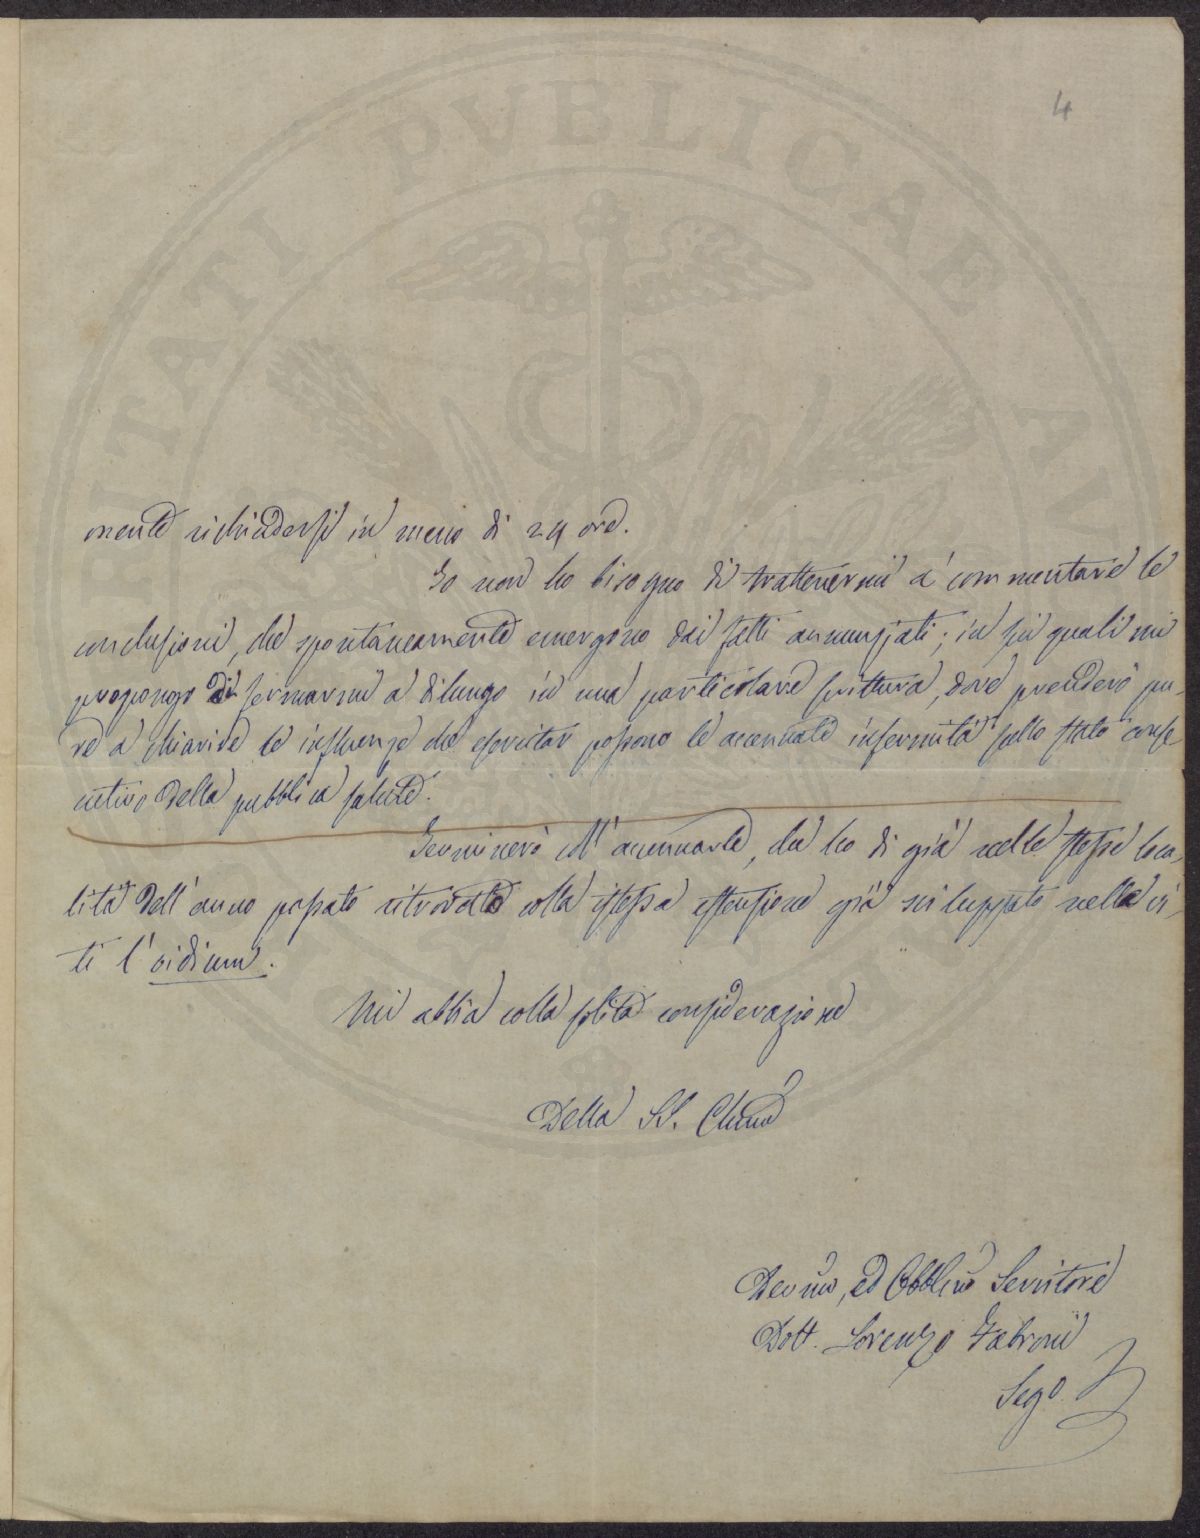 4
mente richiudersi in meno di 24 ore.
Io non ho bisogno di trattenermi a commentare le
conclusioni, che spontaneamente emergono dai fatti annunziati; in sui quali mi
propongo di fermarmi a dilungo in una particolare scrittura, dove prenderò pu-
re a chiarire le influenze che esercitar possono le accennate infermità sullo stato conse
cutivo della pubblica salute.
Terminerò coll' accennarle, che ho di già nelle stesse loca-
lità dell' anno passato ritrovato colla istessa estensione già sviluppato nelle vi-
ti l'oidium.
Mi abbia colla solita considerazione
Della SS. Chma
Devmo, ed Obblmo Servitore
Dott. Lorenzo Fabroni
Sego